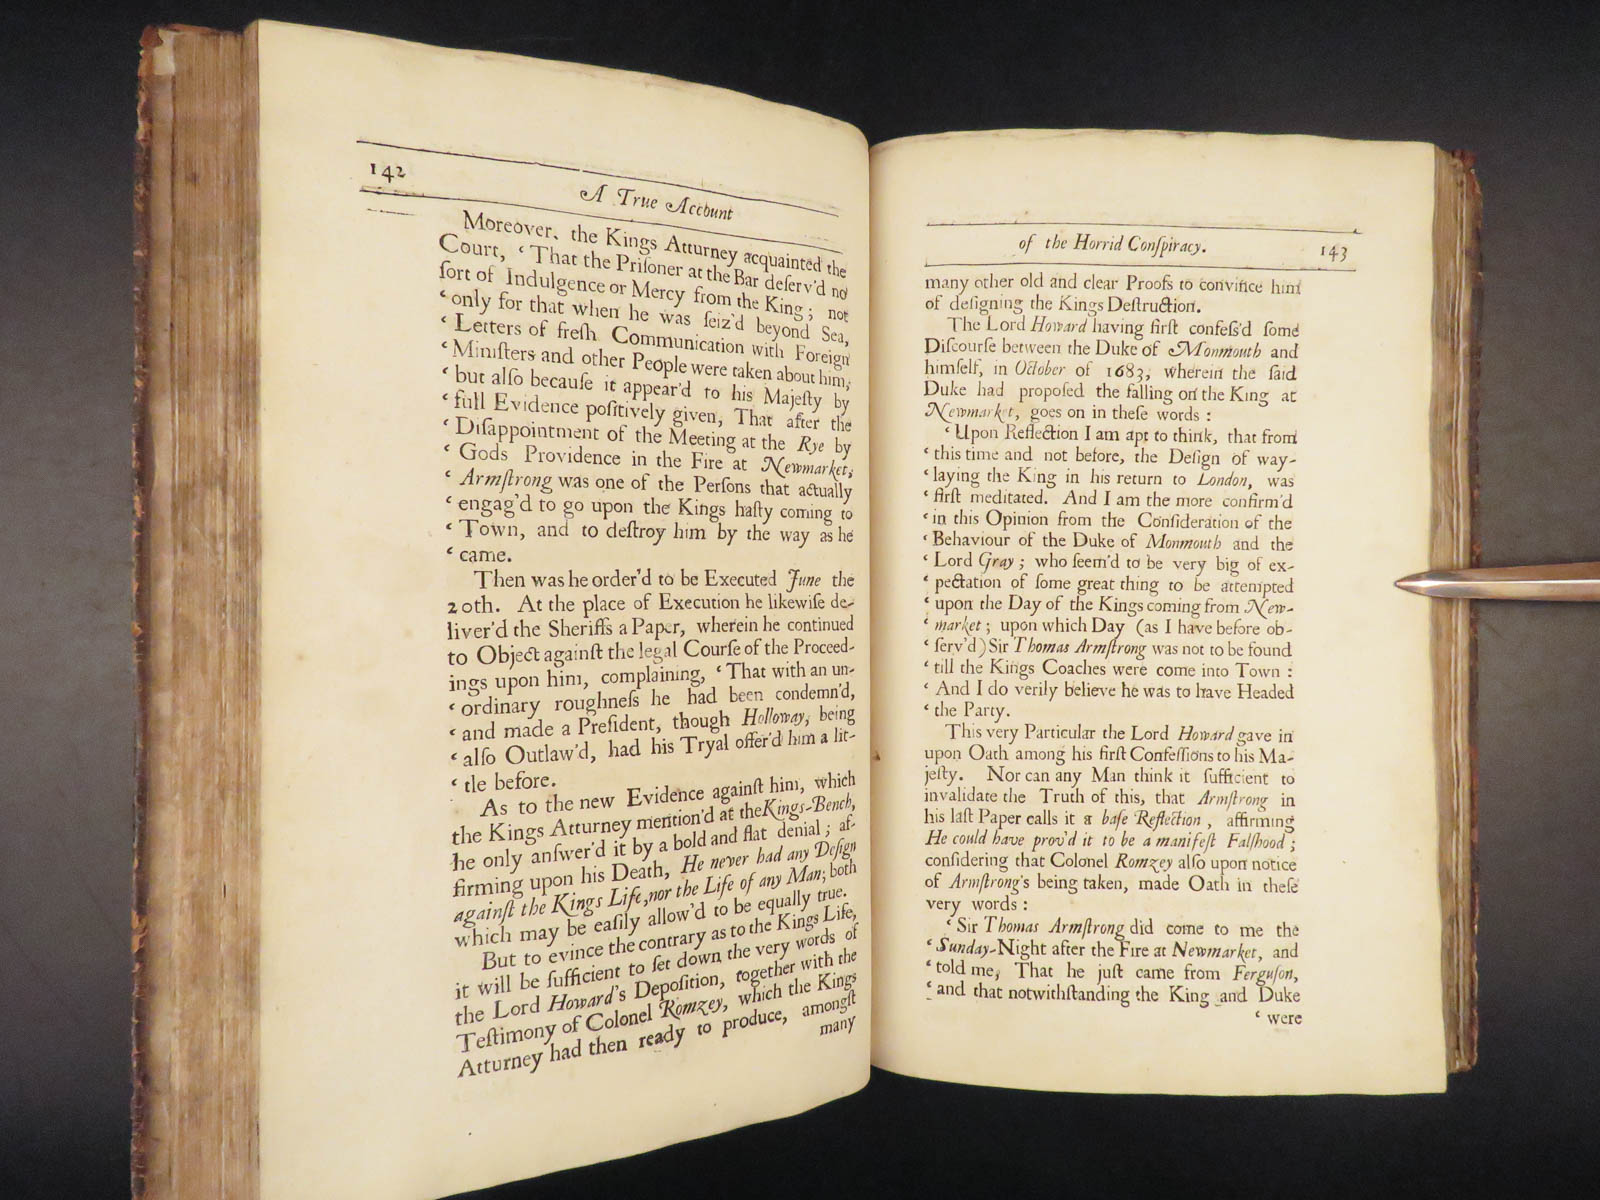 142
A True Account
Moreover, the Kings Atturney acquainted the
Court, ‘ That the Priſoner at the Bar deſerv'd no
ſort of Indulgence or Mercy from the King; not
‘ only for that when he was ſeiz'd beyond Sea,
‘ Letters of freſh Communication with Foreign
‘ Miniſters and other People were taken about him,
‘ but alſo becauſe it appear'd to his Majeſty by
‘ full Evidence poſitively given, That after the
‘ Diſappointment of the Meeting at the Rye by
‘ Gods Providence in the Fire at Newmarket,
‘ Armſtrong was one of the Perſons that actually
‘ engag'd to go upon the Kings haſty coming to
‘ Town, and to deſtroy him by the way as he
‘ came.
Then was he order'd to be Executed June the
20th. At the place of Execution he likewiſe de-
liver'd the Sheriffs a Paper, wherein he continued
to Object againſt the legal Courſe of the Proceed-
ings upon him, complaining, ‘ That with an un-
‘ ordinary roughneſs he had been condemn'd,
‘ and made a Preſident, though Holloway, being
‘ alſo Outlaw'd, had his Tryal offer'd him a lit-
‘ tle before.
As to the new Evidence againſt him, which
the Kings Atturney mention'd at the Kings-Bench,
he only anſwer'd it by a bold and flat denial; af-
firming upon his Death, He never had any Deſign
againſt the Kings Life, nor the Life of any Man; both
which may be eaſily allow'd to be equally true.
But to evince the contrary as to the Kings Life,
it will be ſufficient to ſet down the very words of
the Lord Howard's Depoſition, together with the
Teſtimony of Colonel Romzey, which the Kings
Atturney had then ready to produce, amongſt
many
of the Horrid Conſpiracy.
143
many other old and clear Proofs to convince him
of deſigning the Kings Deſtruction.
The Lord Howard having firſt confeſs'd ſome
Diſcourſe between the Duke of Monmouth and
himſelf, in October of 1683, wherein the ſaid
Duke had propoſed the falling on the King at
Newmarket, goes on in theſe words :
‘ Upon Reflection I am apt to think, that from
‘ this time and not before, the Deſign of way-
‘ laying the King in his return to London, was
‘ firſt meditated. And I am the more confirm'd
‘ in this Opinion from the Conſideration of the
‘ Behaviour of the Duke of Monmouth and the
‘ Lord Gray; who ſeem'd to be very big of ex-
‘ pectation of ſome great thing to be attempted
‘ upon the Day of the Kings coming from New-
‘ market; upon which Day (as I have before ob-
‘ ſerv'd) Sir Thomas Armſtrong was not to be found
‘ till the Kings Coaches were come into Town :
‘ And I do verily believe he was to have Headed
‘ the Party.
This very Particular the Lord Howard gave in
upon Oath among his firſt Confeſſions to his Ma-
jeſty. Nor can any Man think it ſufficient to
invalidate the Truth of this, that Armſtrong in
his laſt Paper calls it a baſe Reflection, affirming
He could have prov'd it to be a manifeſt Falſhood;
conſidering that Colonel Romzey alſo upon notice
of Armſtrong's being taken, made Oath in theſe
very words :
‘ Sir Thomas Armſtrong did come to me the
‘ Sunday-Night after the Fire at Newmarket, and
‘ told me, That he juſt came from Ferguſon,
‘ and that notwithſtanding the King and Duke
‘ were